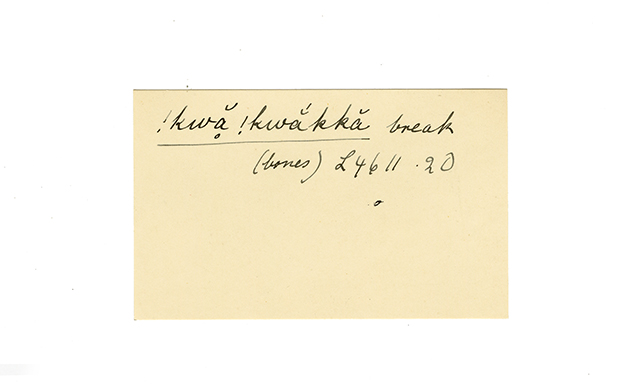 !kwặ !kwắkkă break
(bones) L4611.20